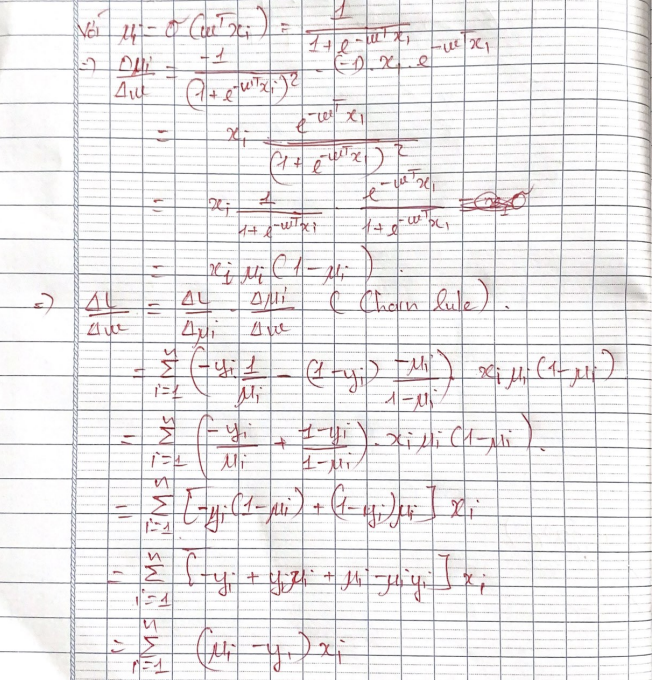 với μi = σ(wᵀxi) = 1 / (1 + e^(-wᵀxi))
=> Δμi/Δw = -1 / (1 + e^(-wᵀxi))² · (-1) · xi · e^(-wᵀxi)
= xi e^(-wᵀxi) / (1 + e^(-wᵀxi))²
= xi 1 / (1 + e^(-wᵀxi)) · e^(-wᵀxi) / (1 + e^(-wᵀxi))
= xi μi (1 - μi).
=> ΔL/Δw = ΔL/Δμi · Δμi/Δw ( Chain rule ).
= Σ_{i=1}^{n} (-yi 1/μi - (1 - yi) -μi/(1-μi)) xi μi (1 - μi)
= Σ_{i=1}^{n} (-yi/μi + (1-yi)/(1-μi)) · xi μi (1 - μi).
= Σ_{i=1}^{n} [-yi (1 - μi) + (1 - yi) μi] xi
= Σ_{i=1}^{n} [-yi + yi μi + μi - μi yi] xi
= Σ_{i=1}^{n} (μi - yi) xi